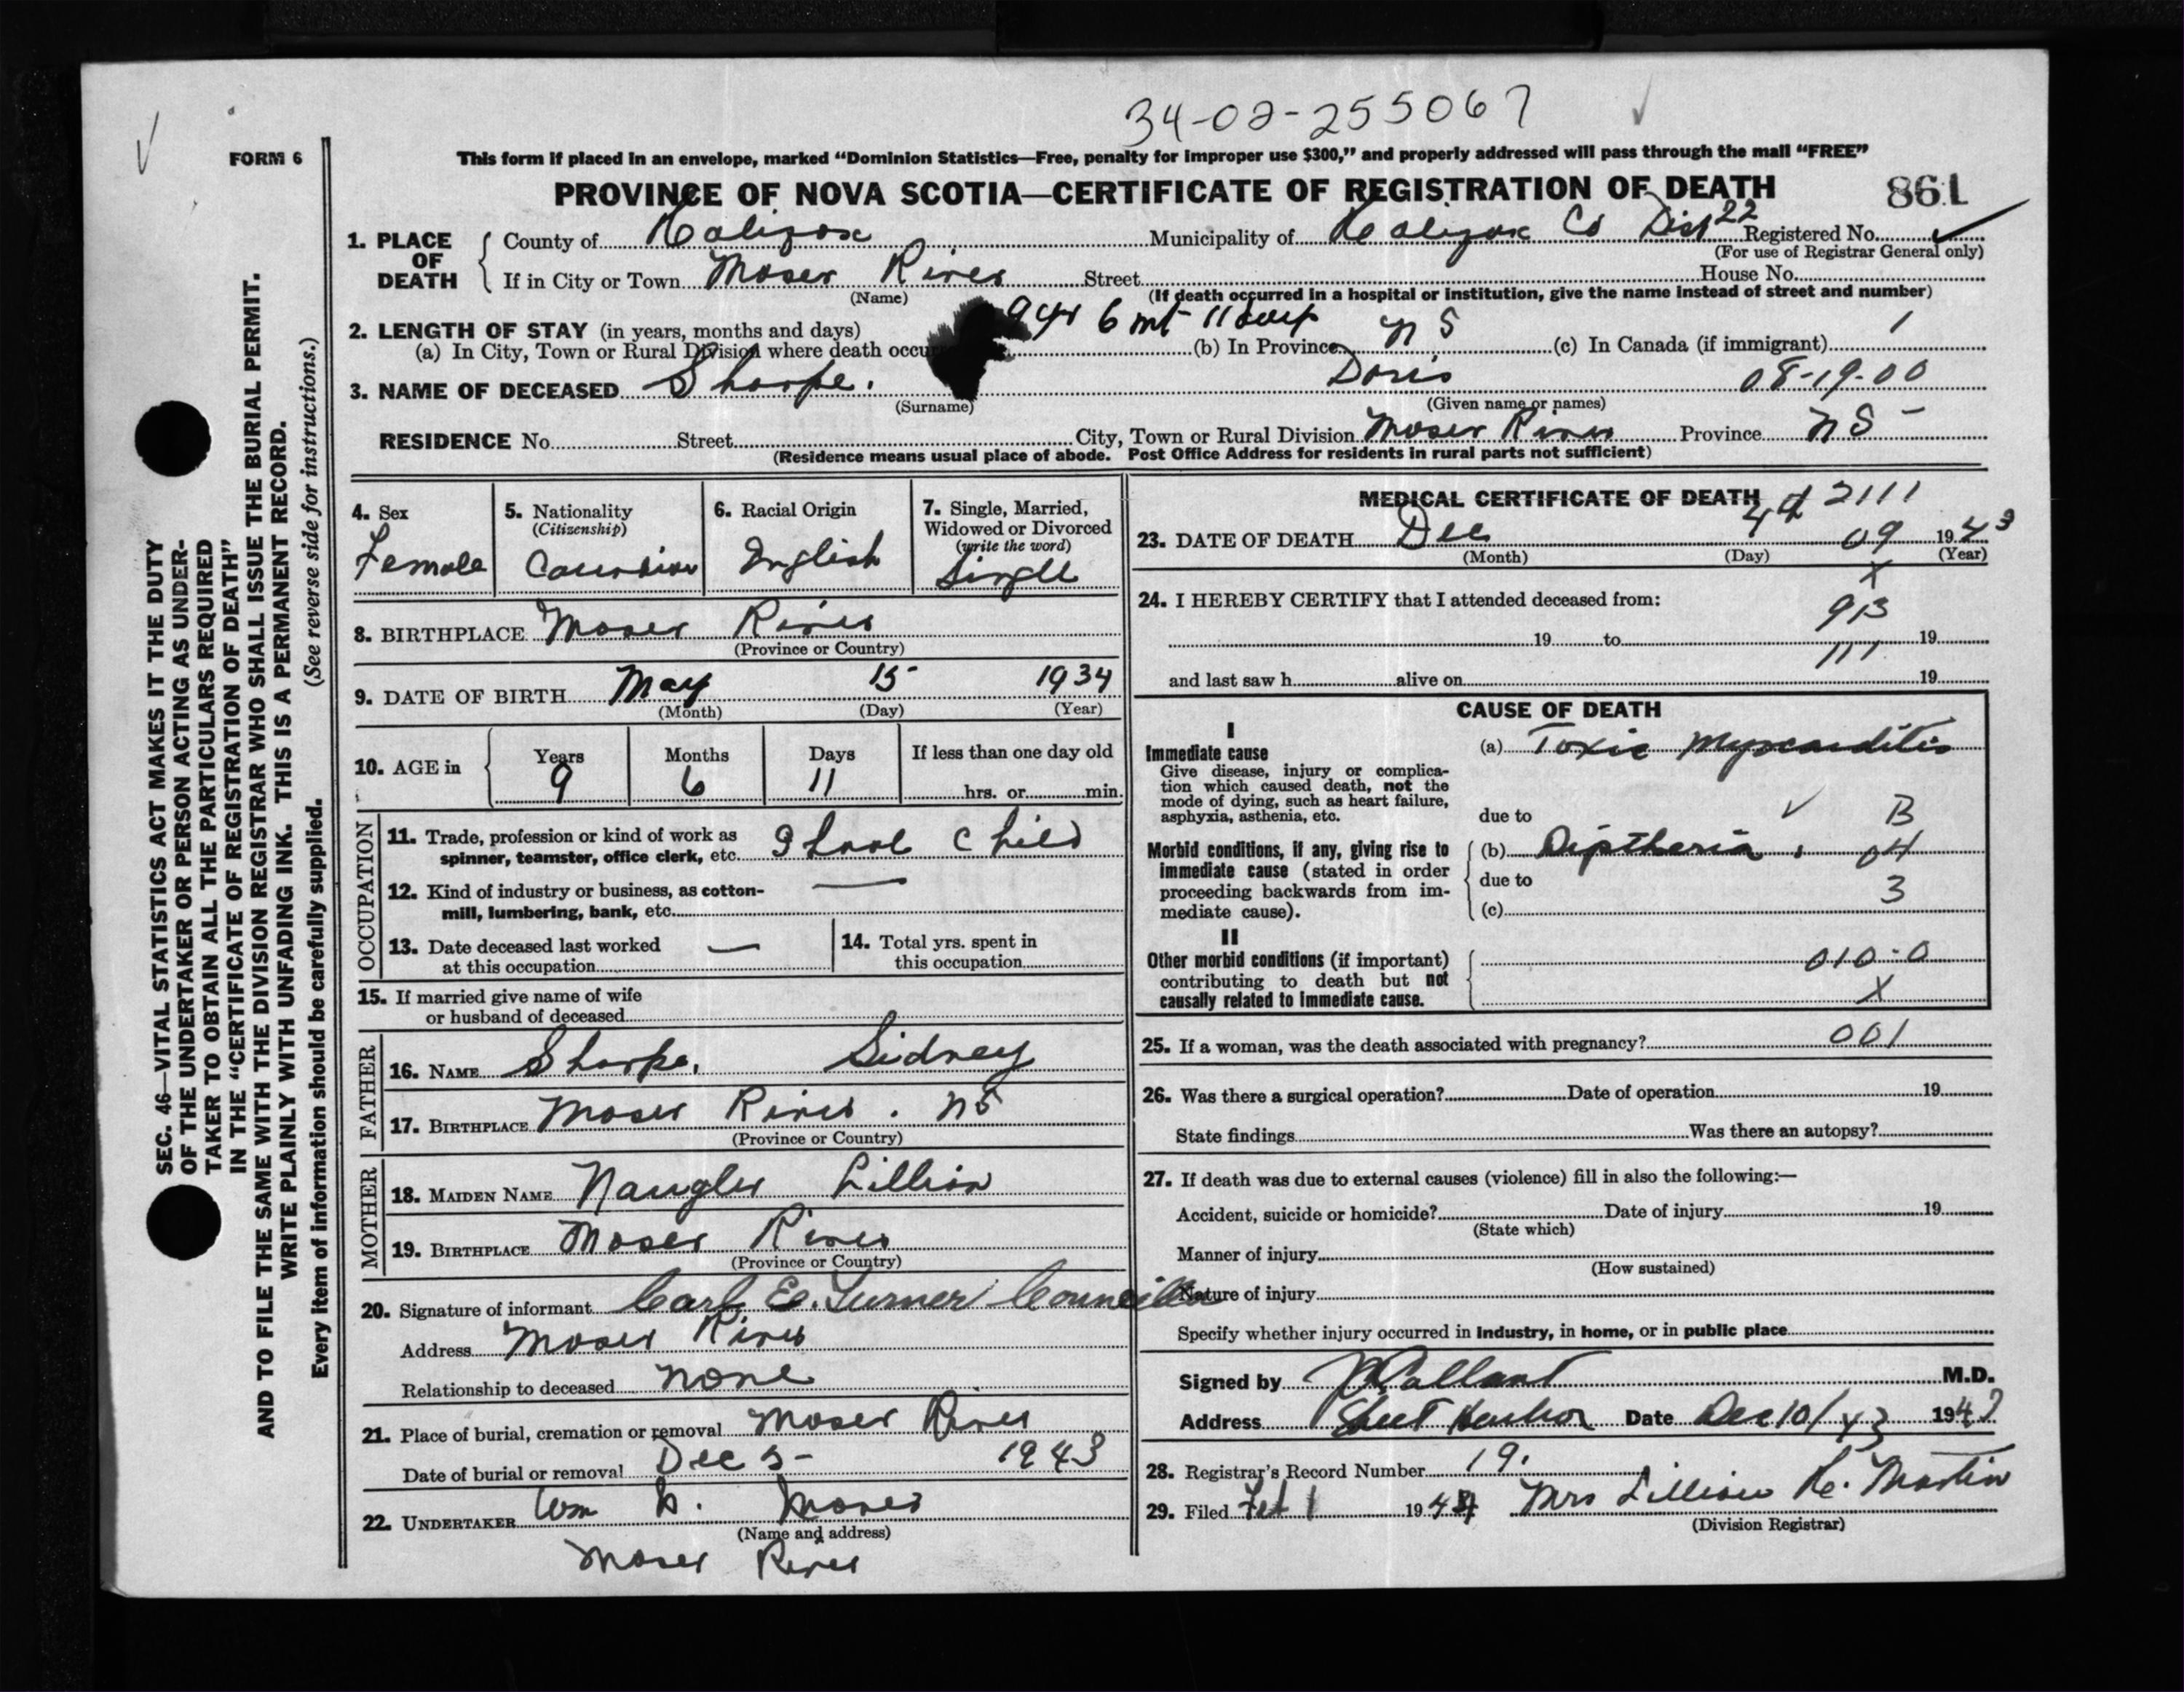 34-02-255067
FORM 6
This form if placed in an envelope, marked “Dominion Statistics—Free, penalty for improper use $300,” and properly addressed will pass through the mail “FREE”
PROVINCE OF NOVA SCOTIA—CERTIFICATE OF REGISTRATION OF DEATH
861
1. PLACE OF DEATH
County of Halifax Municipality of Halifax Co Dist 22 Registered No.
(For use of Registrar General only)
If in City or Town Moser River Street House No.
(Name) (If death occurred in a hospital or institution, give the name instead of street and number)
2. LENGTH OF STAY (in years, months and days) 9 yr 6 mt 11 days
(a) In City, Town or Rural Division where death occu (b) In Province N S (c) In Canada (if immigrant) 1
3. NAME OF DECEASED Sharpe. Doris 08-19-00
(Surname) (Given name or names)
RESIDENCE No. Street City, Town or Rural Division Moser River Province N S
(Residence means usual place of abode. Post Office Address for residents in rural parts not sufficient)
4. Sex
Female
5. Nationality
(Citizenship)
Canadian
6. Racial Origin
Inglish
7. Single, Married,
Widowed or Divorced
(write the word)
Single
8. BIRTHPLACE Moser River
(Province or Country)
9. DATE OF BIRTH May 15 1934
(Month) (Day) (Year)
10. AGE in
Years Months Days If less than one day old
9 6 11 hrs. or min.
OCCUPATION
11. Trade, profession or kind of work as
spinner, teamster, office clerk, etc. Shool Child
12. Kind of industry or business, as cotton-
mill, lumbering, bank, etc. —
13. Date deceased last worked
at this occupation —
14. Total yrs. spent in
this occupation
15. If married give name of wife
or husband of deceased
FATHER
16. NAME Sharpe, Sidney
17. BIRTHPLACE Moser River. NS
(Province or Country)
MOTHER
18. MAIDEN NAME Naugler Lillian
19. BIRTHPLACE Moser River
(Province or Country)
20. Signature of informant Carl E. Turner Councillor
Address Moser River
Relationship to deceased none
21. Place of burial, cremation or removal Moser River
Date of burial or removal Dec 5 - 1943
22. UNDERTAKER Wm Moser
(Name and address)
Moser River
MEDICAL CERTIFICATE OF DEATH
2111
23. DATE OF DEATH Dec 4 09 1943
(Month) (Day) (Year)
X
24. I HEREBY CERTIFY that I attended deceased from:
913
19 to 19
111
and last saw h alive on 19
CAUSE OF DEATH
I
Immediate cause
Give disease, injury or complica-
tion which caused death, not the
mode of dying, such as heart failure,
asphyxia, asthenia, etc.
(a) Toxic Myocarditis
due to B
Morbid conditions, if any, giving rise to
immediate cause (stated in order
proceeding backwards from im-
mediate cause).
(b) Diptheria. 04
due to
3
(c)
II
Other morbid conditions (if important)
contributing to death but not
causally related to immediate cause.
010.0
X
25. If a woman, was the death associated with pregnancy? 001
26. Was there a surgical operation? Date of operation 19
State findings Was there an autopsy?
27. If death was due to external causes (violence) fill in also the following:—
Accident, suicide or homicide? Date of injury 19
(State which)
Manner of injury
(How sustained)
Nature of injury
Specify whether injury occurred in industry, in home, or in public place
Signed by M.D.
Address Sheet Harbor Date Dec 10/43 1943
28. Registrar's Record Number 19.
29. Filed Feb 1 1944 Mrs Lillian H. Martin
(Division Registrar)
SEC. 46—VITAL STATISTICS ACT MAKES IT THE DUTY
OF THE UNDERTAKER OR PERSON ACTING AS UNDER-
TAKER TO OBTAIN ALL THE PARTICULARS REQUIRED
IN THE “CERTIFICATE OF REGISTRATION OF DEATH”
AND TO FILE THE SAME WITH THE DIVISION REGISTRAR WHO SHALL ISSUE THE BURIAL PERMIT.
WRITE PLAINLY WITH UNFADING INK. THIS IS A PERMANENT RECORD.
Every item of information should be carefully supplied. (See reverse side for instructions.)